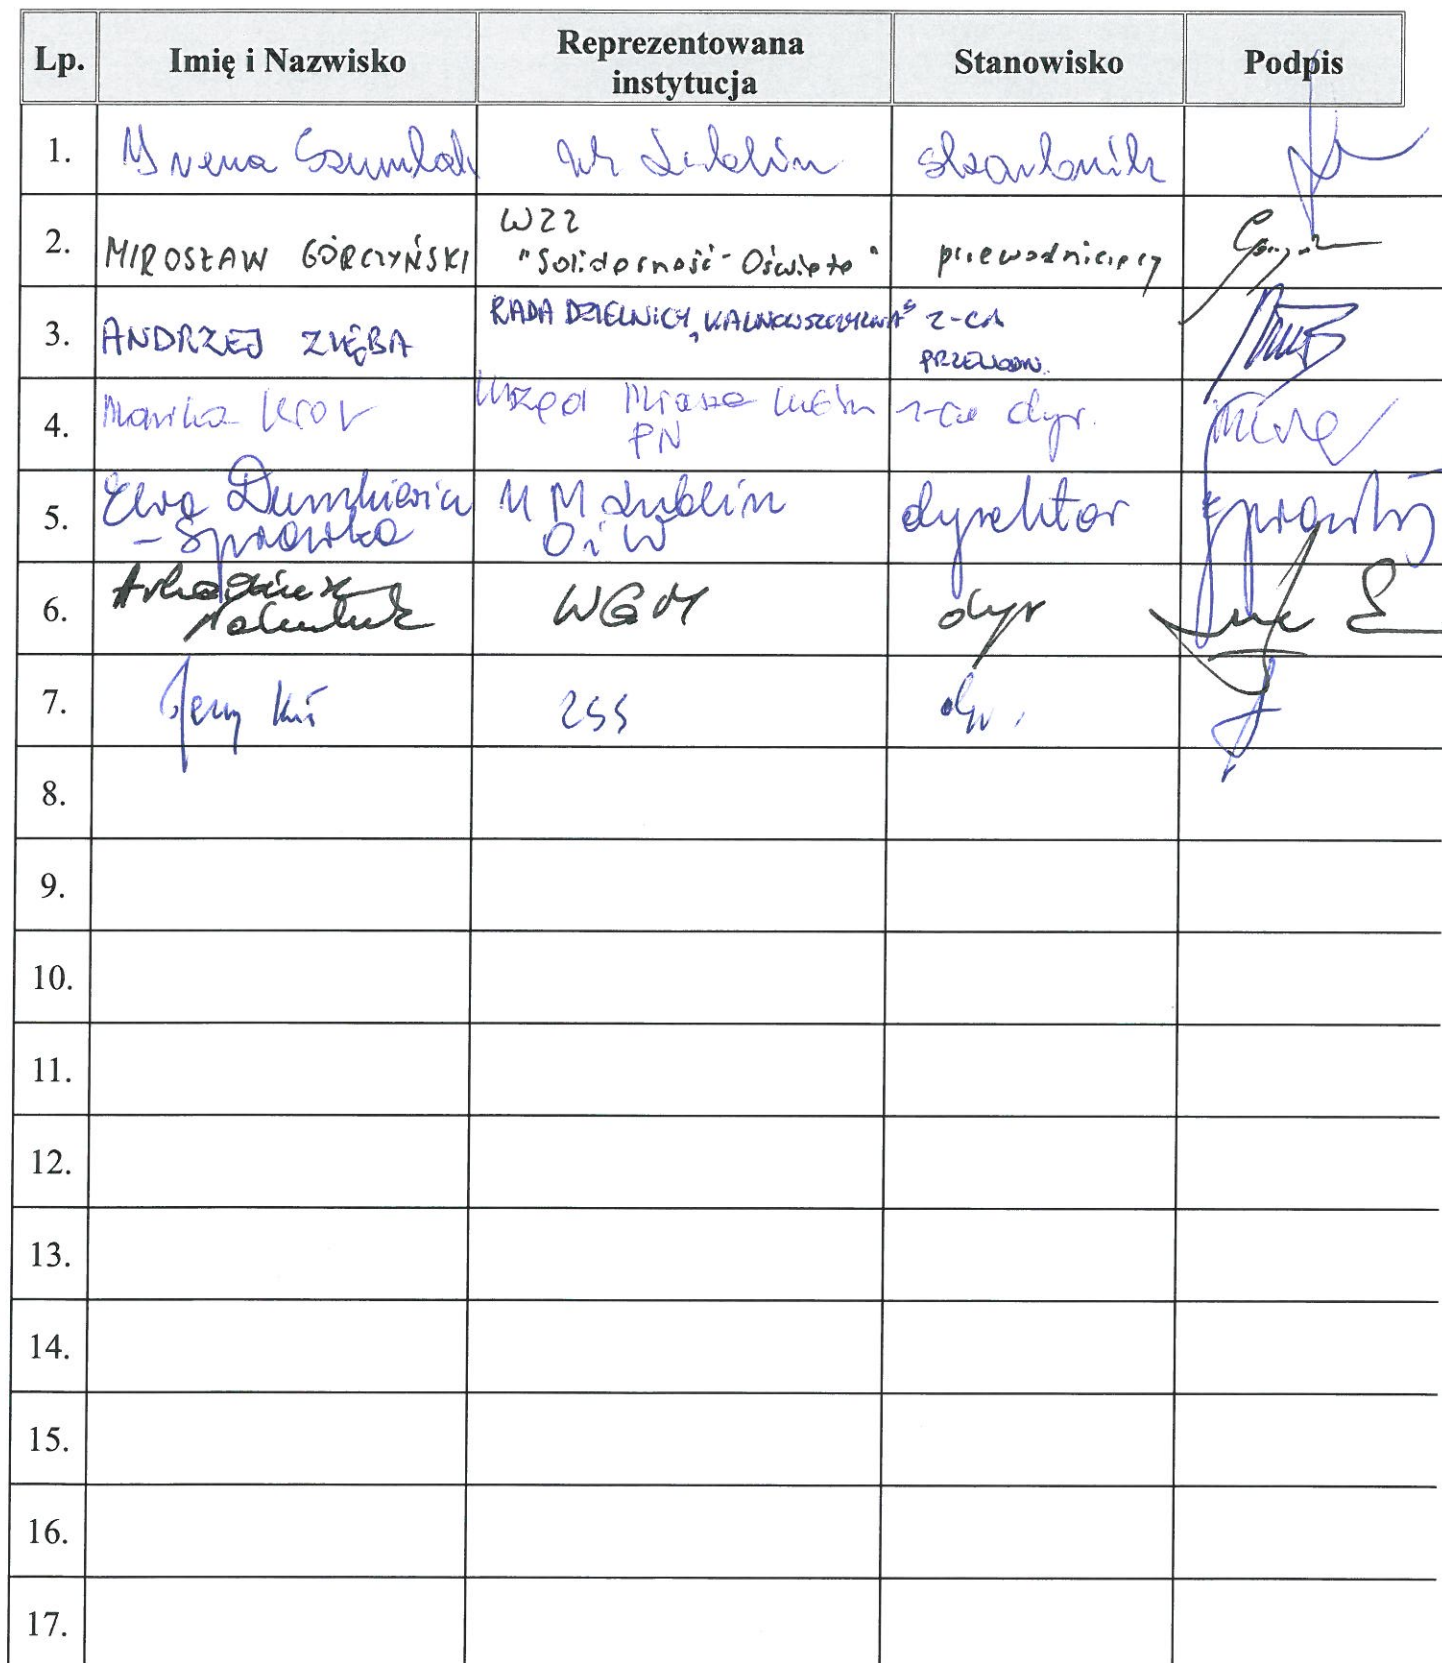 Lp. Imię i Nazwisko Reprezentowana instytucja Stanowisko Podpis
1. Irena Szumlak UM Lublin skarbnik
2. MIROSŁAW GÓRCZYŃSKI WZZ "Solidarność - Oświata" przewodniczący
3. ANDRZEJ ZIĘBA RADA DZIELNICY „KALINOWSZCZYZNA” Z-CA PRZEWODN.
4. Urząd Miasta Lublin PN z-ca dyr.
5. Ewa Dumkiewicz - Sprawka UM Lublin OiW dyrektor
6. Arkadiusz WGM dyr
7. Jerzy Kuś ZSS dyr.
8.
9.
10.
11.
12.
13.
14.
15.
16.
17.